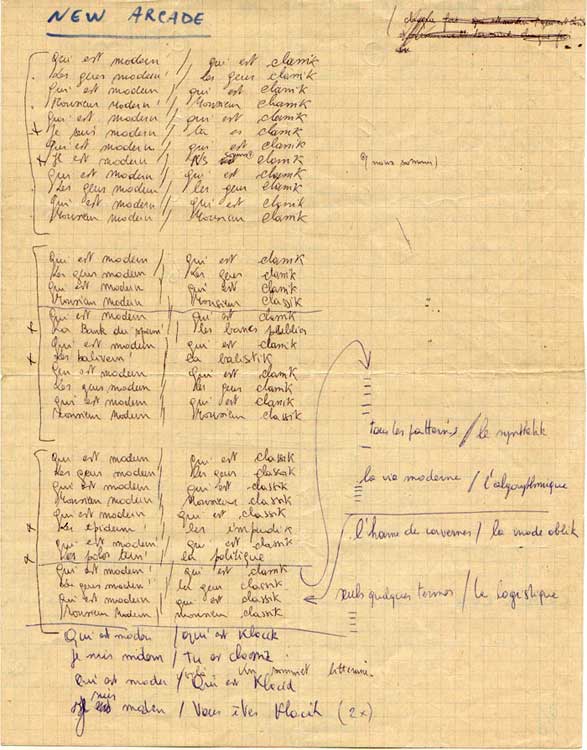 NEW ARCADE
qui est modern // qui est classik
Les gens modern! // les gens classik
qui est modern // qui est classik
Monsieur Modern! // Monsieur classik
qui est modern // qui est classik
Je suis modern // tu es classik
qui est modern // qui est classik
Je est modern // NS sommes classik
(nous sommes)
qui est modern // qui est classik
Les gens modern // les gens classik
qui est modern // qui est classik
Monsieur modern // Monsieur classik
qui est modern / qui est classik
Les gens modern / Les gens classik
qui est modern / qui est classik
Monsieur Modern / Monsieur classik
qui est modern / qui est classik
La Bank du sperm! / les bancs publics
qui est modern / qui est classik
Les balivern! / la balistik
qui est modern / qui est classik
Les gens modern / Les gens classik
qui est modern / qui est classik
Monsieur Modern / Monsieur classik
tous les patternes / le synthétik
la vie moderne / l'algorythmique
l'home de cavernes / la mode oblik
seuls quelques termes / le logistique
qui est modern / qui est classik
Les gens modern / Les gens classik
qui est modern / qui est classik
Monsieur modern / Monsieur classik
qui est modern / qui est classik
Les épiderm! / les impudik
qui est modern! / qui est classik
Les polos tern! / la politique
qui est modern! / qui est classik
Les gens modern / les gens classik
qui est modern / qui est classik
Monsieur Modern / monsieur classik
Qui est modern / qui est Klacik
Je suis modern / Tu es
voilà un sommet littéraire
qui est moder / Qui est Klacid
Je suis modern / Vous êtes Klacik (2x)